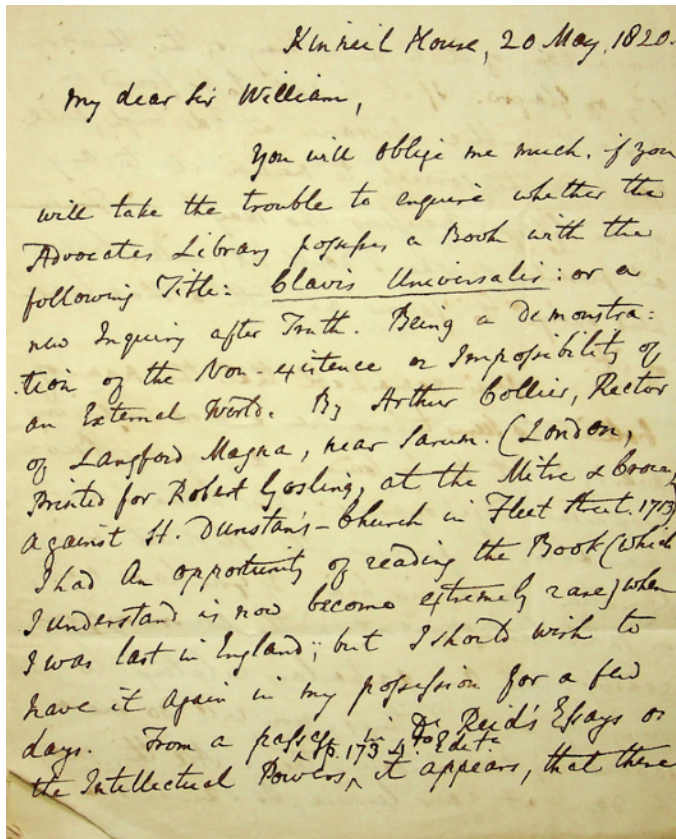 Kinneil House, 20 May, 1820.
My dear Sir William,
You will oblige me much, if you
will take the trouble to enquire whether the
Advocates Library possesses a Book with the
following Title: Clavis Universalis: or a
new Inquiry after Truth. Being a Demonstra=
tion of the Non-existence or Impossibility of
an External World. By Arthur Collier, Rector
of Langford Magna, near Sarum. (London,
Printed for Robert Gosling, at the Mitre & Crown,
against St. Dunstan's-Church in Fleet Street. 1713)
I had an opportunity of reading the Book (which
I understand is now become extremely rare) when
I was last in England; but I should wish to
have it again in my possession for a few
days. From a passage in Dr Reid's Essays on
the Intellectual Powers (p. 173 4to Editn it appears, that there